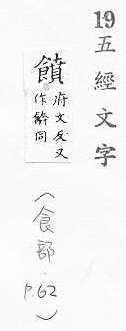 19 五經文字
饙
府文反又
作餴同
(食部. P.62)